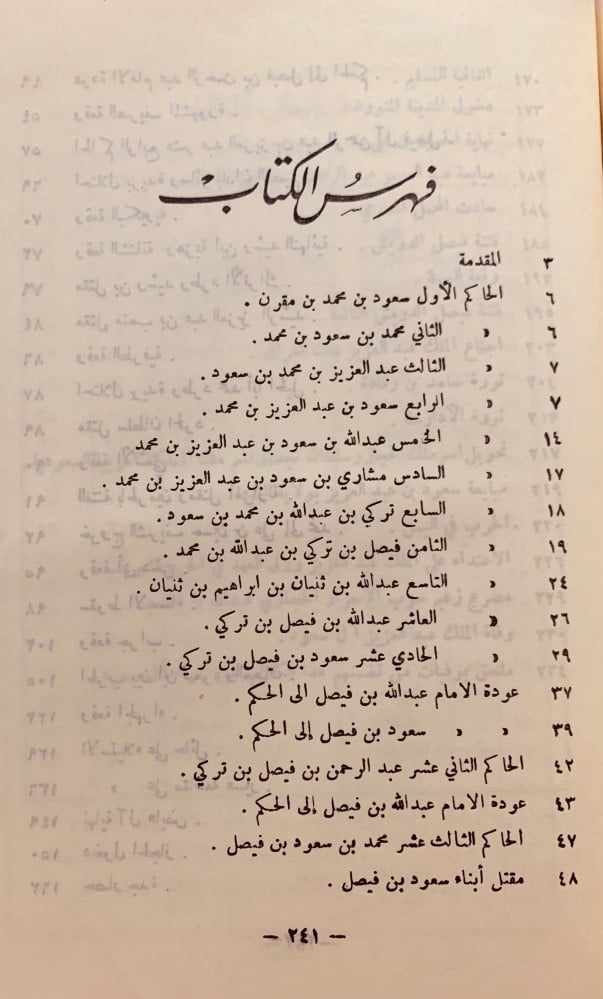 فهرس الكتاب
٣ المقدمة
٦ الحاكم الأول سعود بن محمد بن مقرن .
٦ » الثاني محمد بن سعود بن محمد .
٧ » الثالث عبد العزيز بن محمد بن سعود .
٧ » الرابع سعود بن عبد العزيز بن محمد .
١٤ » الخامس عبدالله بن سعود بن عبد العزيز بن محمد
١٧ » السادس مشاري بن سعود بن عبد العزيز بن محمد .
١٨ » السابع تركي بن عبدالله بن محمد بن سعود .
١٩ » الثامن فيصل بن تركي بن عبدالله بن محمد .
٢٤ » التاسع عبدالله بن ثنيان بن ابراهيم بن ثنيان .
٢٦ » العاشر عبدالله بن فيصل بن تركي .
٢٩ » الحادي عشر سعود بن فيصل بن تركي .
٣٧ عودة الامام عبدالله بن فيصل الى الحكم .
٣٩ » » سعود بن فيصل إلى الحكم .
٤٢ الحاكم الثاني عشر عبد الرحمن بن فيصل بن تركي .
٤٣ عودة الامام عبدالله بن فيصل إلى الحكم .
٤٧ الحاكم الثالث عشر محمد بن سعود بن فيصل .
٤٨ مقتل أبناء سعود بن فيصل .
— ٢٤١ —